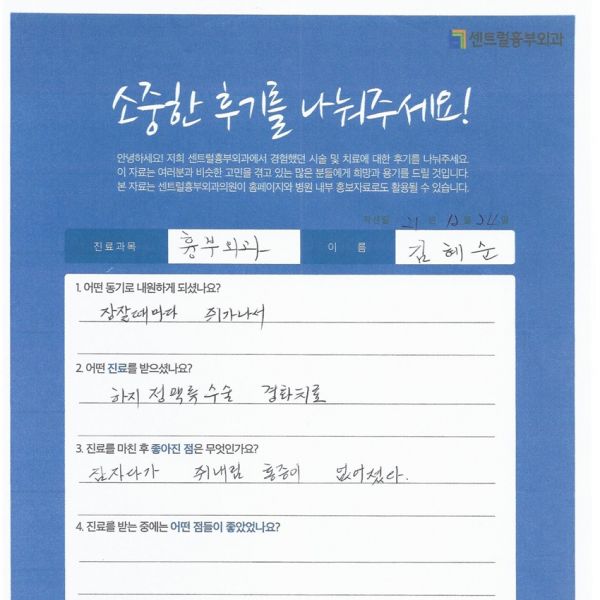 센트럴흉부외과
소중한 후기를 나눠주세요!
안녕하세요! 저희 센트럴흉부외과에서 경험했던 시술 및 치료에 대한 후기를 나눠주세요.
이 자료는 여러분과 비슷한 고민을 겪고 있는 많은 분들에게 희망과 용기를 드릴 것입니다.
본 자료는 센트럴흉부외과의원이 홈페이지와 병원 내부 홍보자료로도 활용될 수 있습니다.
작성일 21 년 12 월 일
진료과목 흉부외과 이 름 김혜순
1. 어떤 동기로 내원하게 되셨나요?
잠잘때마다 쥐가나서
2. 어떤 진료를 받으셨나요?
하지 정맥류수술 경화치료
3. 진료를 마친 후 좋아진 점은 무엇인가요?
잠자다가 쥐내림 통증이 없어졌다.
4. 진료를 받는 중에는 어떤 점들이 좋았었나요?